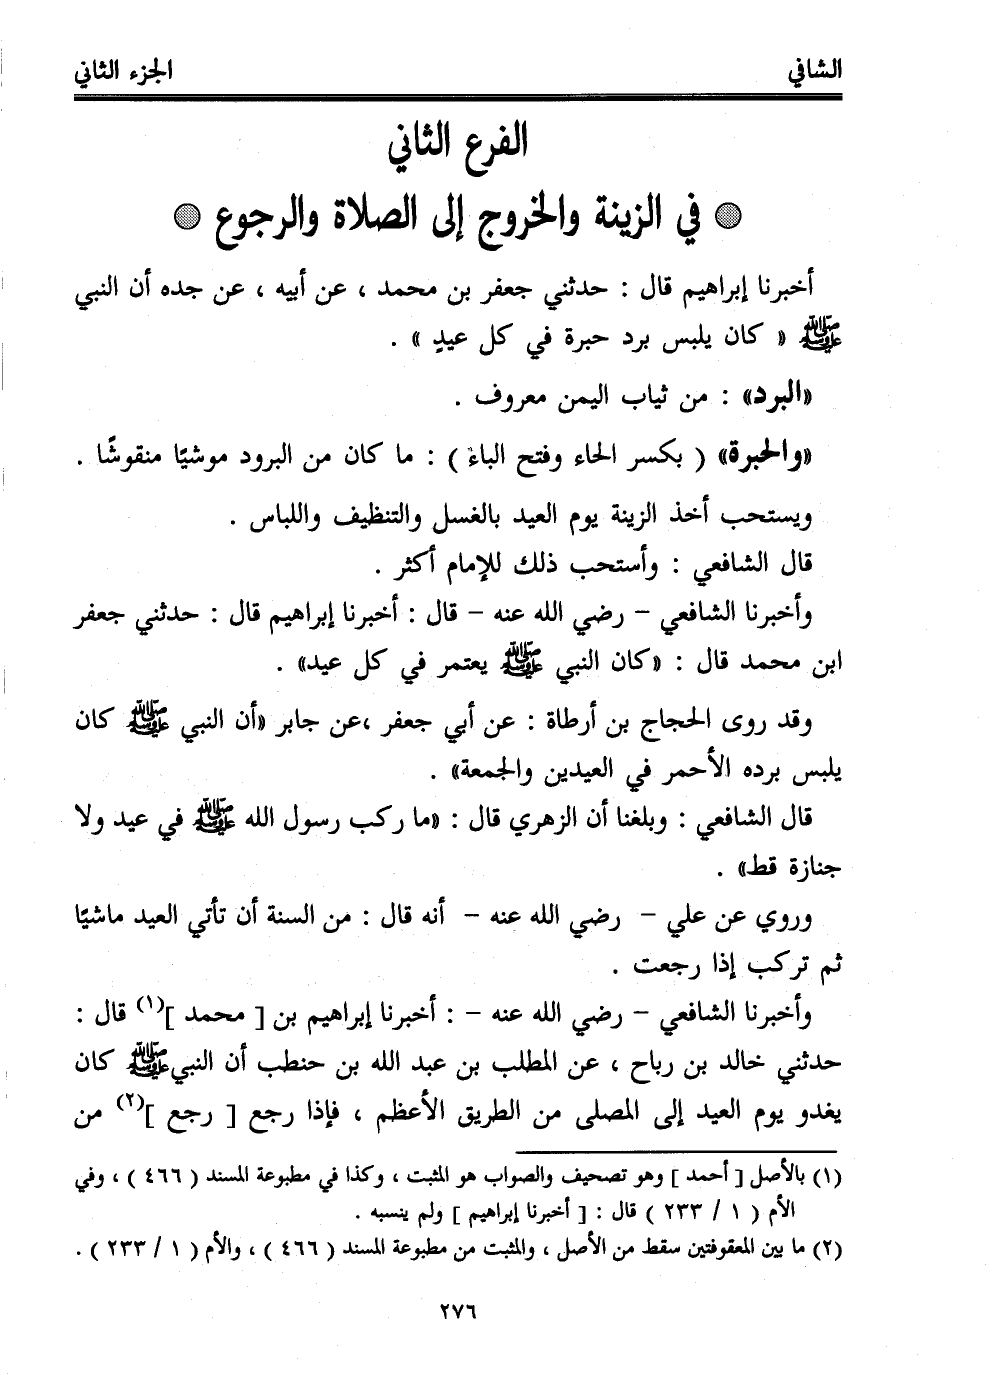 الشافي الجزء الثاني
الفرع الثاني
في الزينة والخروج إلى الصلاة والرجوع
أخبرنا إبراهيم قال : حدثني جعفر بن محمد ، عن أبيه ، عن جده أن النبي
ﷺ « كان يلبس برد حبرة في كل عيدٍ » .
«البرد» : من ثياب اليمن معروف .
«والحبرة» ( بكسر الحاء وفتح الباء ) : ما كان من البرود موشيًا منقوشًا .
ويستحب أخذ الزينة يوم العيد بالغسل والتنظيف واللباس .
قال الشافعي : وأستحب ذلك للإمام أكثر .
وأخبرنا الشافعي – رضي الله عنه – قال : أخبرنا إبراهيم قال : حدثني جعفر
ابن محمد قال : «كان النبي ﷺ يعتمر في كل عيد» .
وقد روى الحجاج بن أرطاة : عن أبي جعفر ،عن جابر «أن النبي ﷺ كان
يلبس برده الأحمر في العيدين والجمعة» .
قال الشافعي : وبلغنا أن الزهري قال : «ما ركب رسول الله ﷺ في عيد ولا
جنازة قط» .
وروي عن علي – رضي الله عنه – أنه قال : من السنة أن تأتي العيد ماشيًا
ثم تركب إذا رجعت .
وأخبرنا الشافعي – رضي الله عنه – : أخبرنا إبراهيم بن [ محمد ](١) قال :
حدثني خالد بن رباح ، عن المطلب بن عبد الله بن حنطب أن النبي ﷺ كان
يغدو يوم العيد إلى المصلى من الطريق الأعظم ، فإذا رجع [ رجع ](٢) من
(١) بالأصل [ أحمد ] وهو تصحيف والصواب هو المثبت ، وكذا في مطبوعة المسند ( ٤٦٦ ) ، وفي
الأم ( ١ / ٢٣٣ ) قال : [ أخبرنا إبراهيم ] ولم ينسبه .
(٢) ما بين المعقوفتين سقط من الأصل ، والمثبت من مطبوعة المسند ( ٤٦٦ ) ، والأم ( ١ / ٢٣٣ ) .
٢٧٦